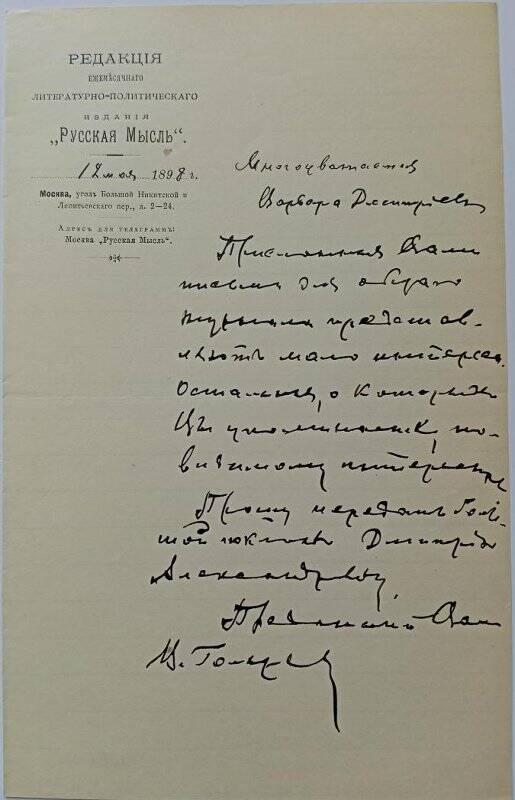 РЕДАКЦІЯ
ЕЖЕМѢСЯЧНАГО
ЛИТЕРАТУРНО-ПОЛИТИЧЕСКАГО
ИЗДАНІЯ
„РУССКАЯ МЫСЛЬ“.
12 мая 1898 г.
Москва, уголъ Большой Никитской и
Леонтьевскаго пер., д. 2—24.
Адресъ для телеграммъ:
Москва „Русская Мысль“.
Многоуважаемая
Варвара Дмитріевна
Присланныя Вами
письма для общаго
журнала представ-
ляютъ мало интереса.
Остальныя, о которыхъ
Вы упоминаете, по-
видимому интереснѣе
Прошу передать
Дмитрію
Александровичу.
Преданный Вам
В. Гольцев